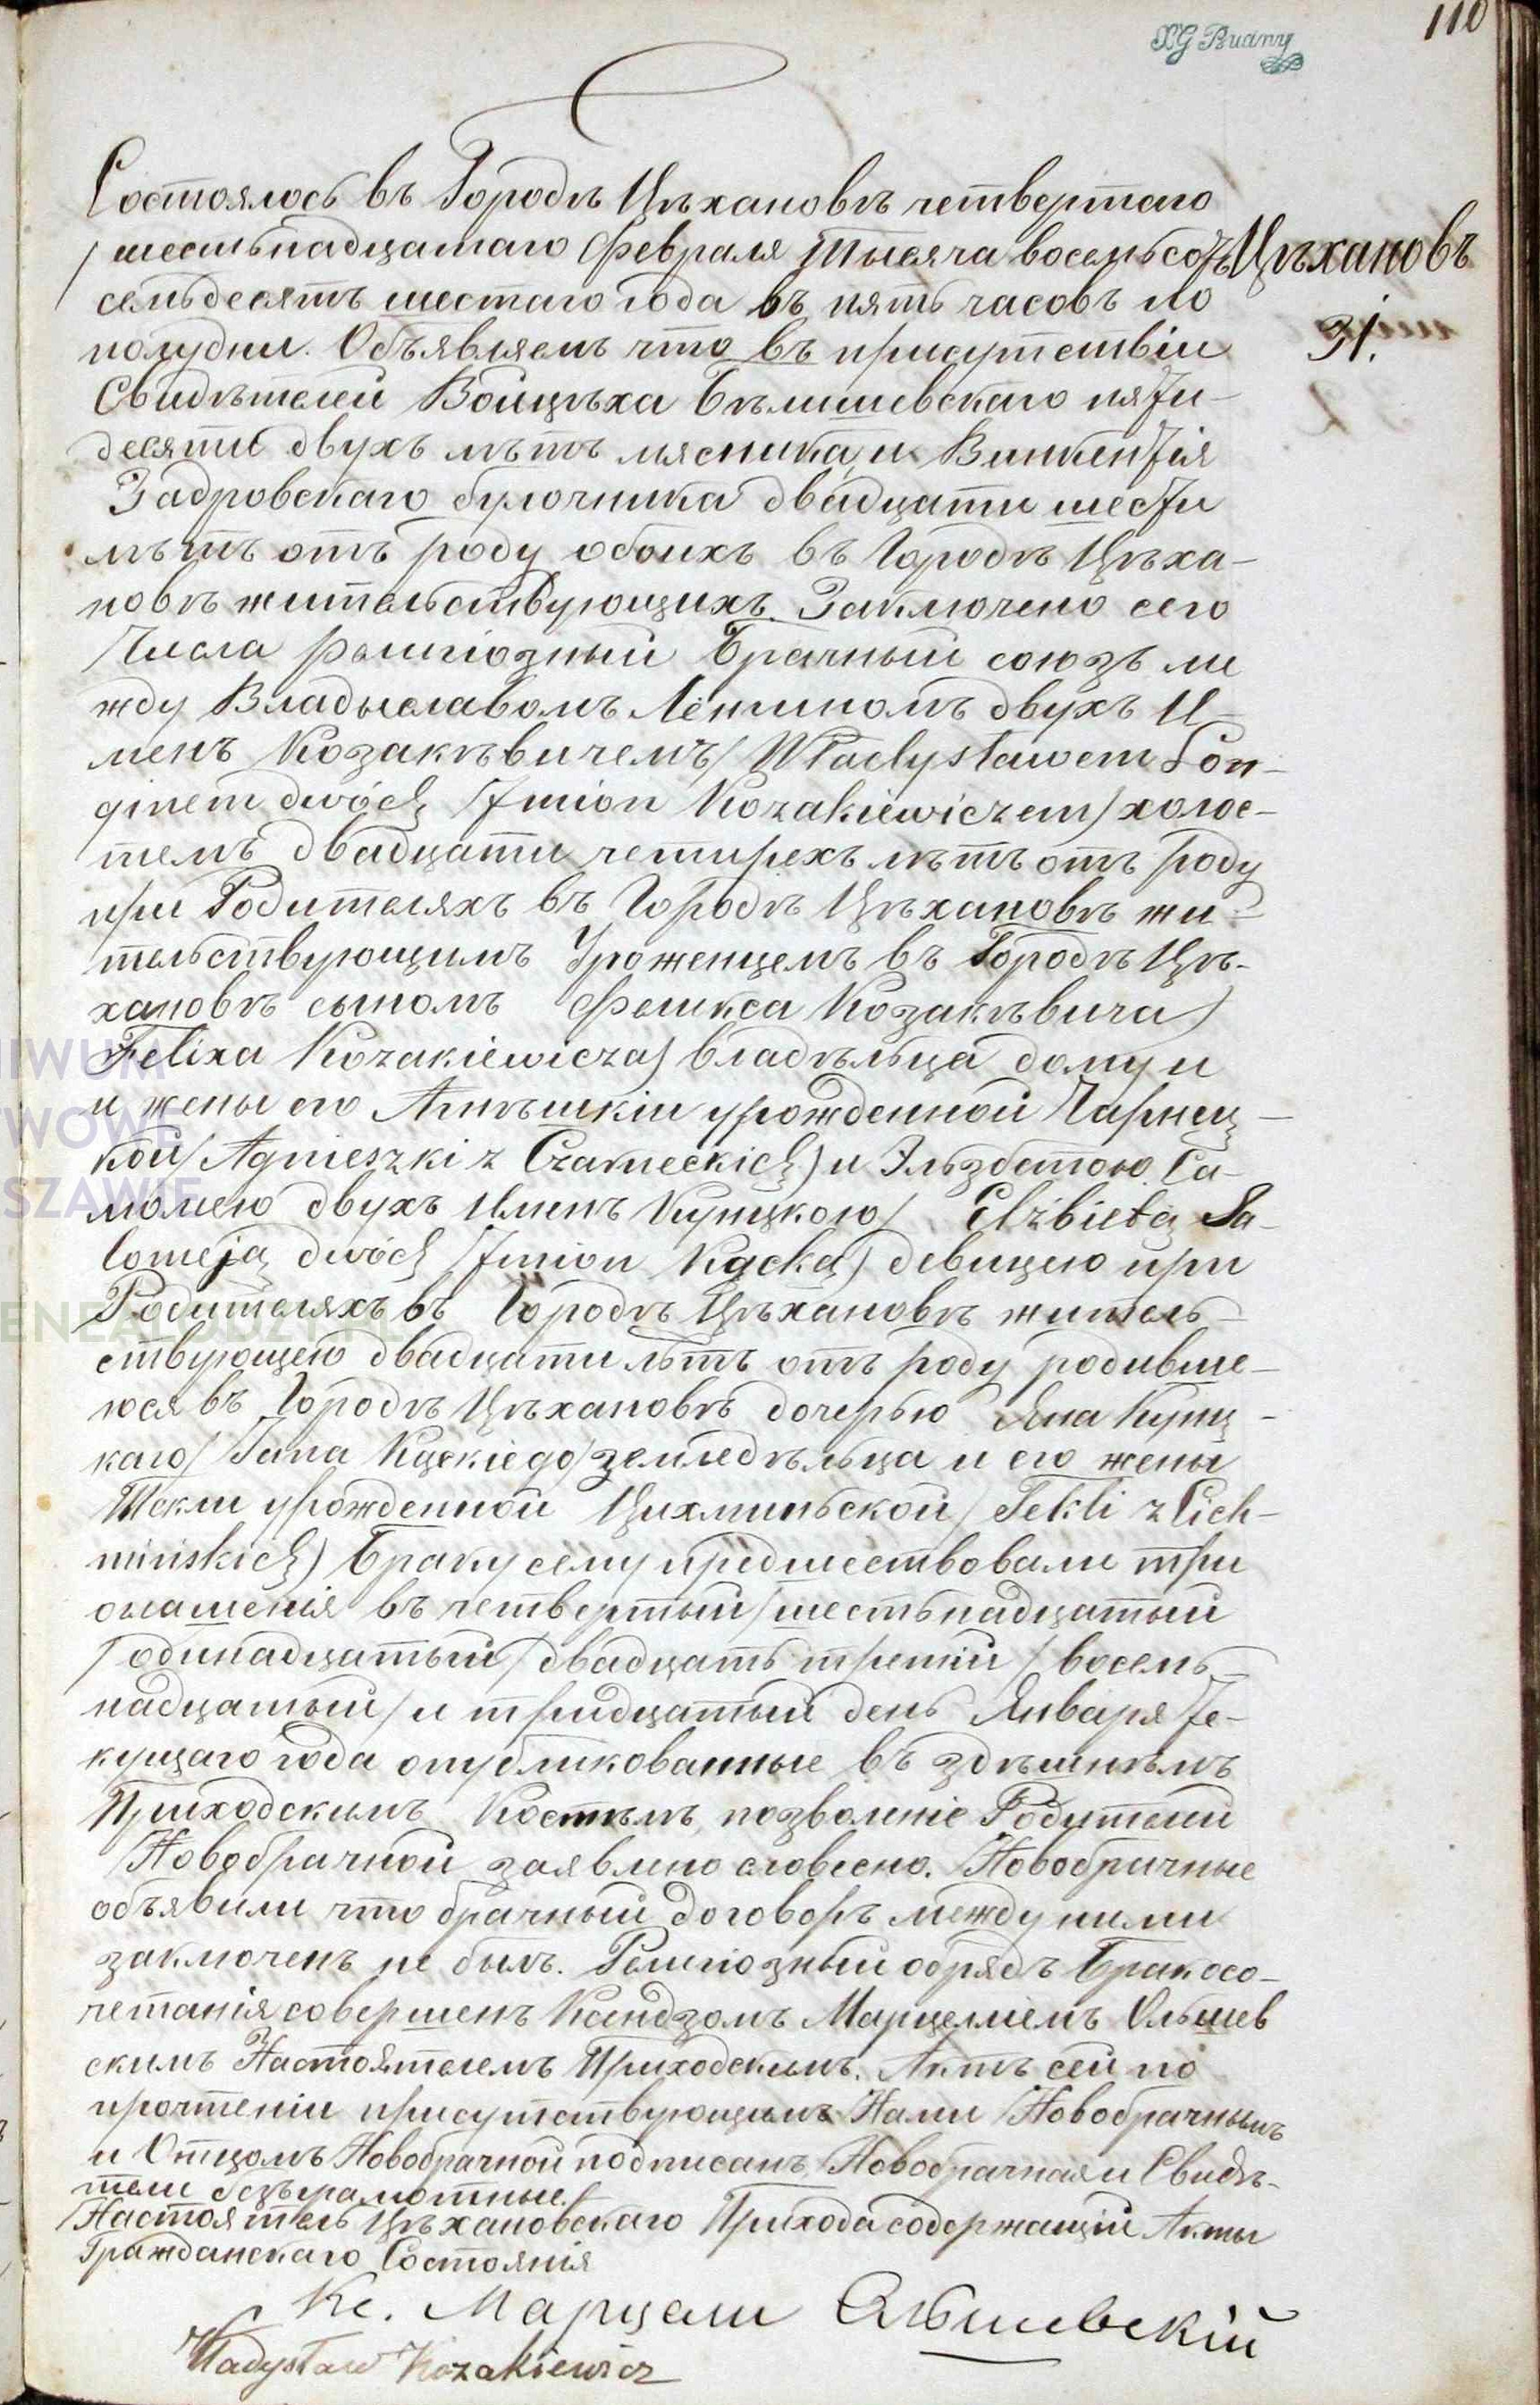 110
Состоялось въ Городѣ Цѣхановѣ четвертаго
/ шестьнадцатаго Февраля тысяча восемьсотъ
Цѣхановъ
семьдесятъ шестаго года въ пять часовъ по
31.
полудни. Объявляемъ что въ присутствіи
Свидѣтелей Войцѣха Бѣлишевскаго пяти-
десяти двухъ лѣтъ мясника, и Винкентія
Задровскаго булочника двадцати шести
лѣтъ отъ роду обоихъ въ Городѣ Цѣха-
новѣ жительствующихъ. Заключено сего
Числа религіозный Брачный союзъ ме
жду Владыславомъ Лёнгиномъ двухъ И-
менъ Козакѣвичемъ / Władysławem Lon-
ginem dwóch Imion Kozakiewiczem) холос-
темъ двадцати четирехъ лѣтъ отъ роду
при Родителяхъ въ Городѣ Цѣхановѣ жи-
тельствующимъ Уроженцемъ въ Городѣ Цѣ-
хановѣ сыномъ Феликса Козакѣвича /
Felixa Kozakiewicza) владѣльца дому и
и жены его Агнѣшкіи урожденной Чарнец-
кой / Agnieszki z Czarneckich) и Эльзбетою Са-
ломею двухъ Именъ Куцкою / Elżbietą Sa-
lomeją dwóch Imion Kącką) девицею при
Родителяхъ въ Городѣ Цѣхановѣ житель-
ствующею двадцати лѣтъ отъ роду родивше-
юся въ Городѣ Цѣхановѣ дочерью Яна Куц-
каго / Jana Kąckiego / земледѣльца и его жены
Текли урожденной Цихминьской / Tekli z Cich-
mińskich) Браку сему предшествовали три
оглашенія въ четвертый / шестьнадцатый
/ одинадцатый / двадцать третій / восемь-
надцатый / и тридцатый день Января те-
кущаго года опубликованные въ здѣшнѣмъ
Приходскимъ Костѣлѣ, позволеніе Родителей
Новобрачной заявлено словесно. Новобрачные
объявили что брачный договоръ между ними
заключенъ не былъ. Религіозный обрядъ Бракосо-
четанія совершенъ Ксендзомъ Марцеліемъ Ольшев
скимъ Настоятелемъ Приходскимъ. Актъ сей по
прочтеніи присутствующимъ Нами Новобрачнымъ
и Отцомъ Новобрачной подписанъ, Новобрачная и Свидѣ-
тели безъграмотные.
Настоятель Цѣхановскаго Прихода содержащій Акты
Гражданскаго Состоянія
Кс. Марцели Ольшевскій
Władysław Kozakiewicz